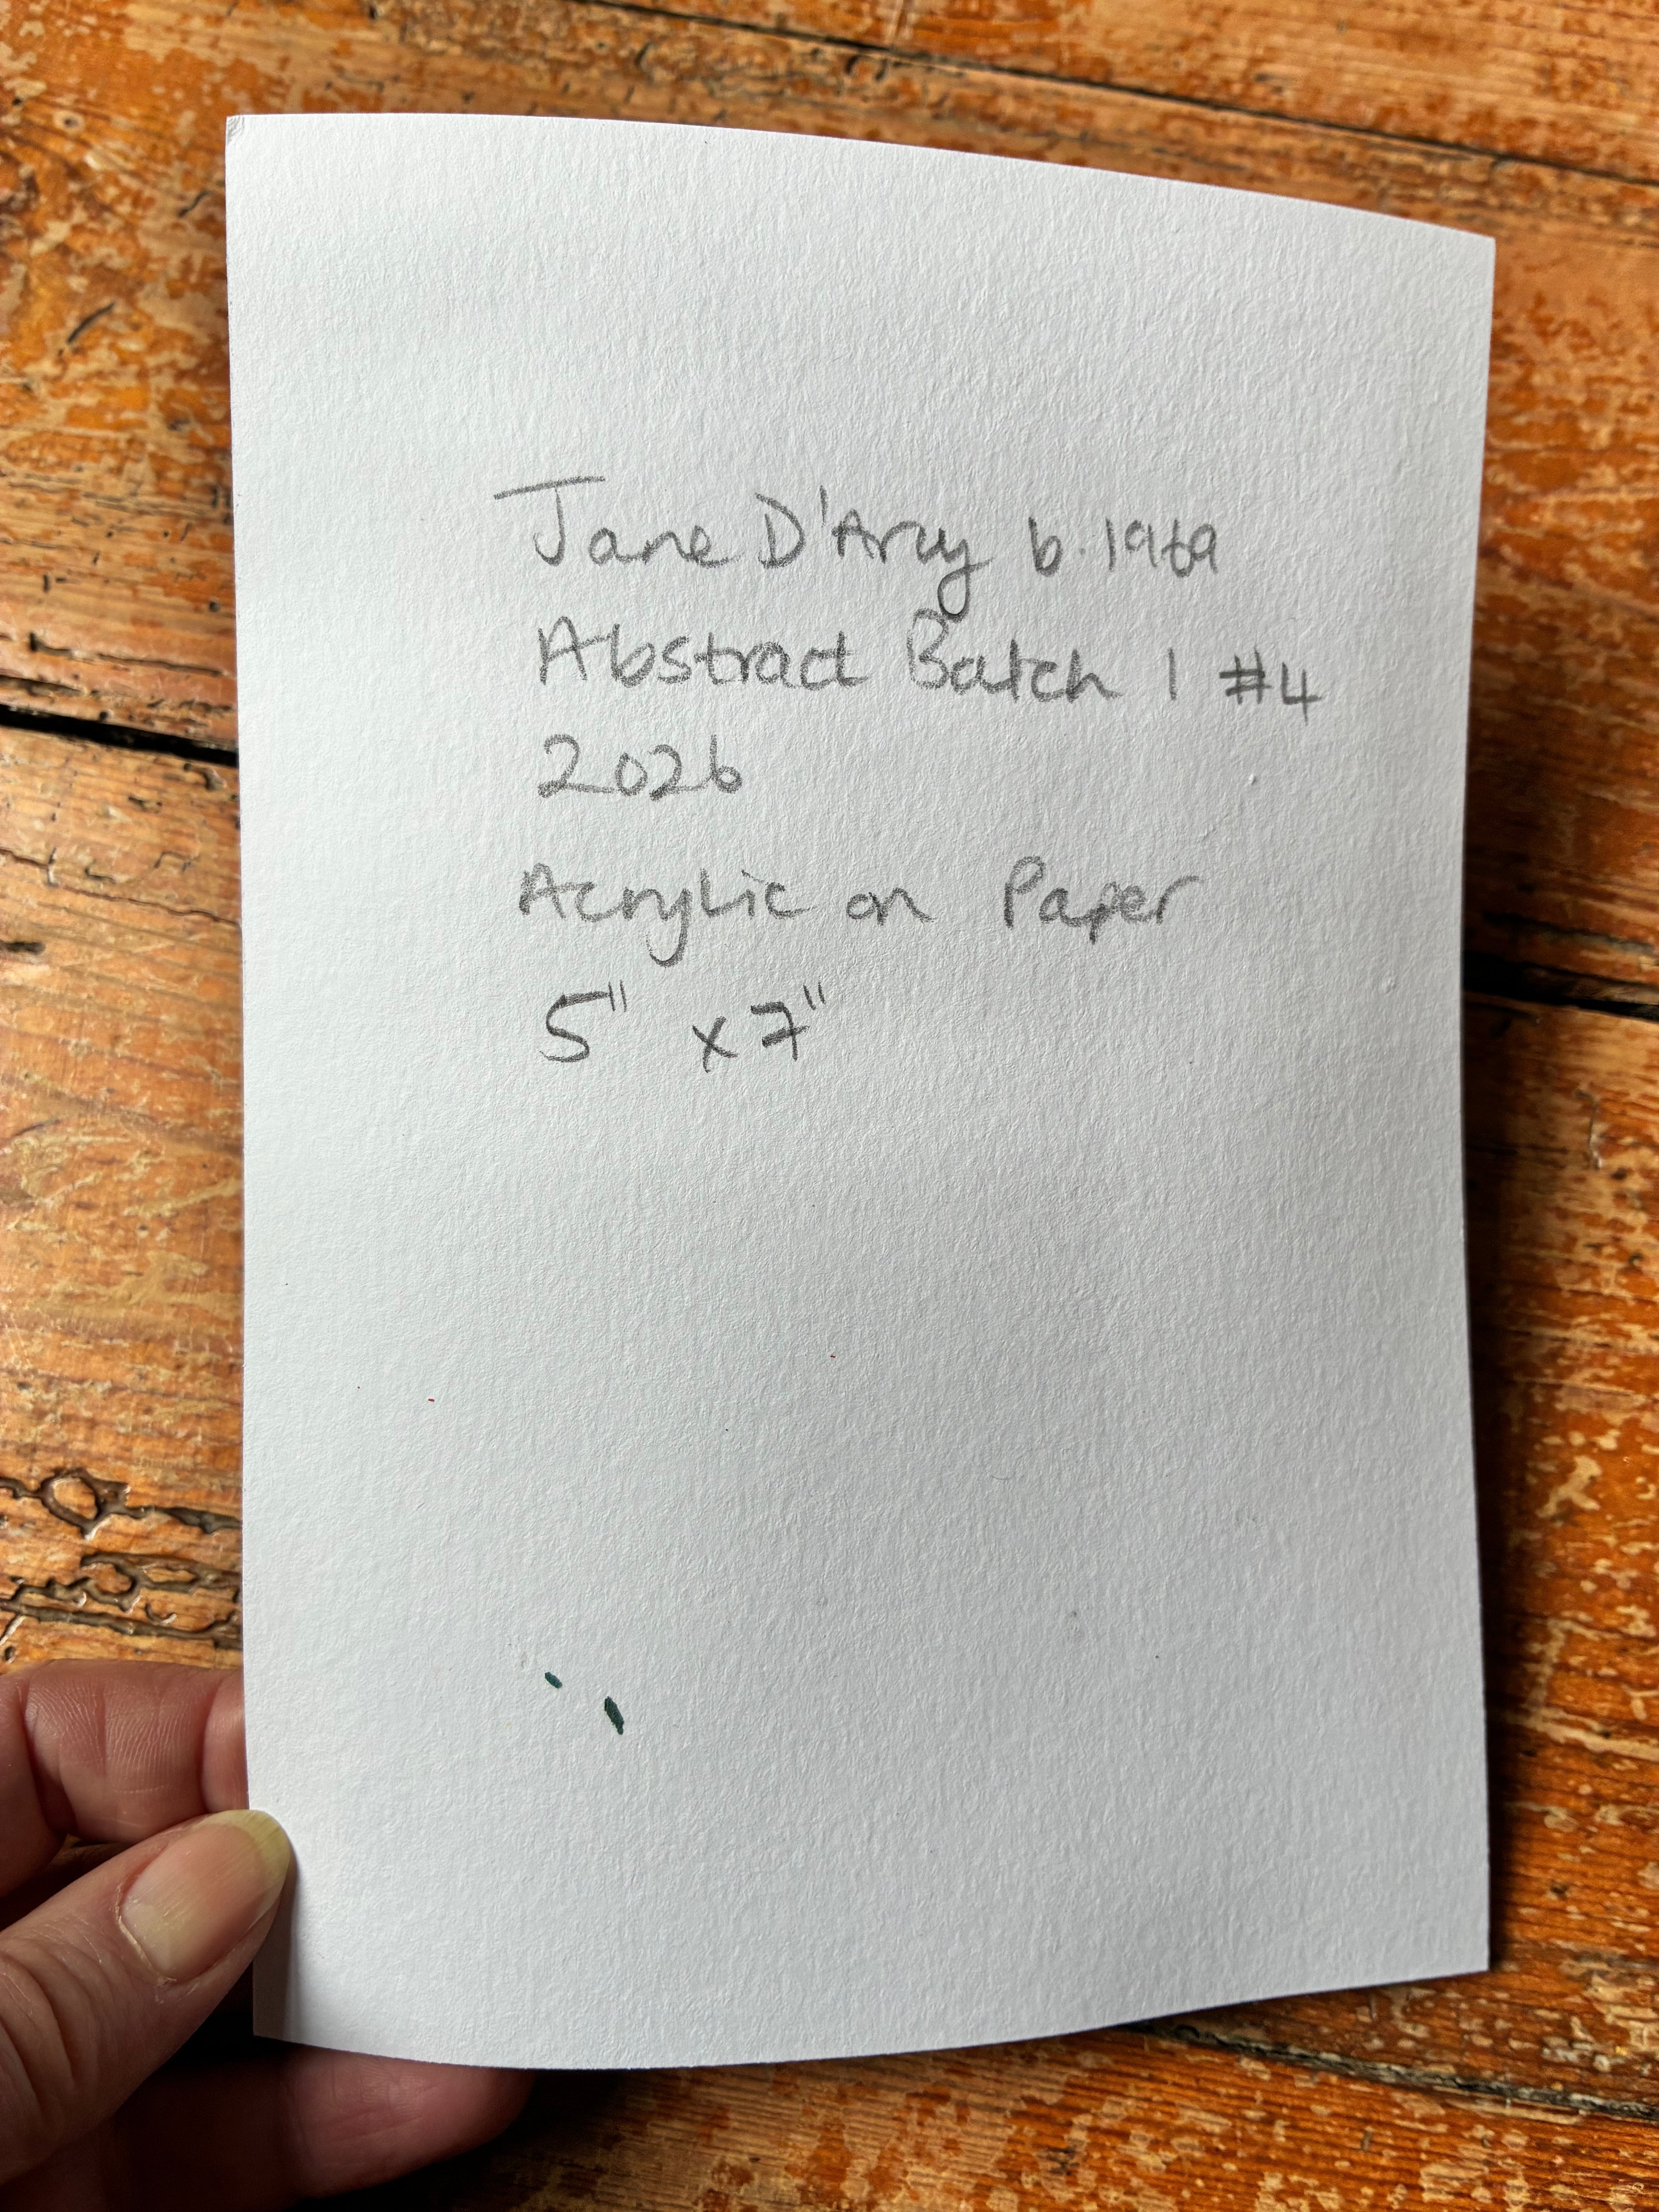 Jane D'Arcy b.1969
Abstract Batch 1 #4
2026
Acrylic on Paper
5" x 7"